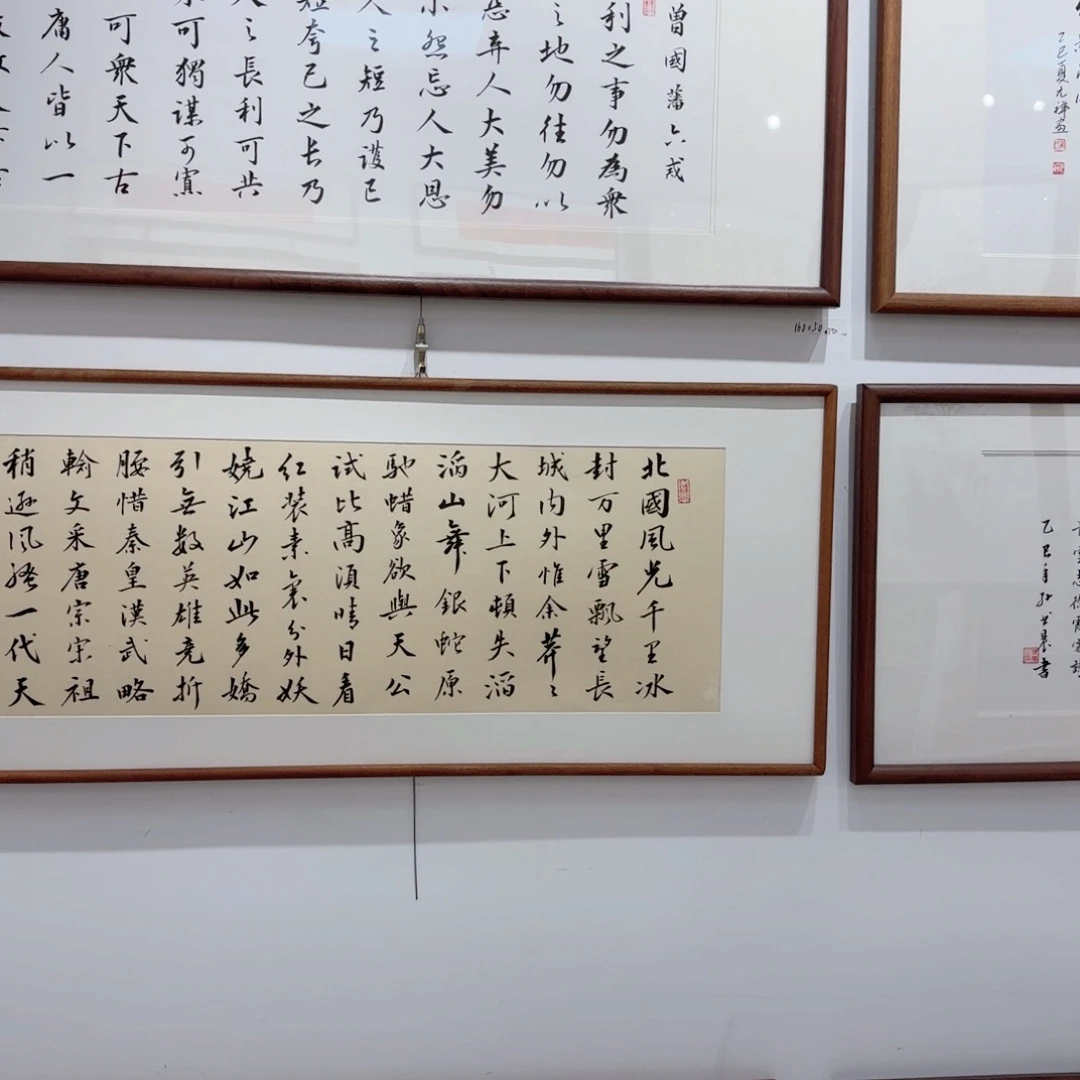 曾國藩六戒
利之事勿為衆
之地勿往勿以
弃人大美勿
怨忘人大恩
人之短乃護己
短夸己之长乃
之長利可共
可獨謀可寡
可衆天下古
腐人皆以一
乙巳夏
北國風光千里冰
封万里雪飘望長
城内外惟余莽〻
大河上下頓失滔
滔山舞銀蛇原
馳蜡象欲與天公
试比高須晴日看
红装素裹分外妖
娆江山如此多嬌
引無数英雄竞折
腰惜秦皇漢武略
輸文采唐宗宋祖
稍逊风骚一代天
乙巳年
書